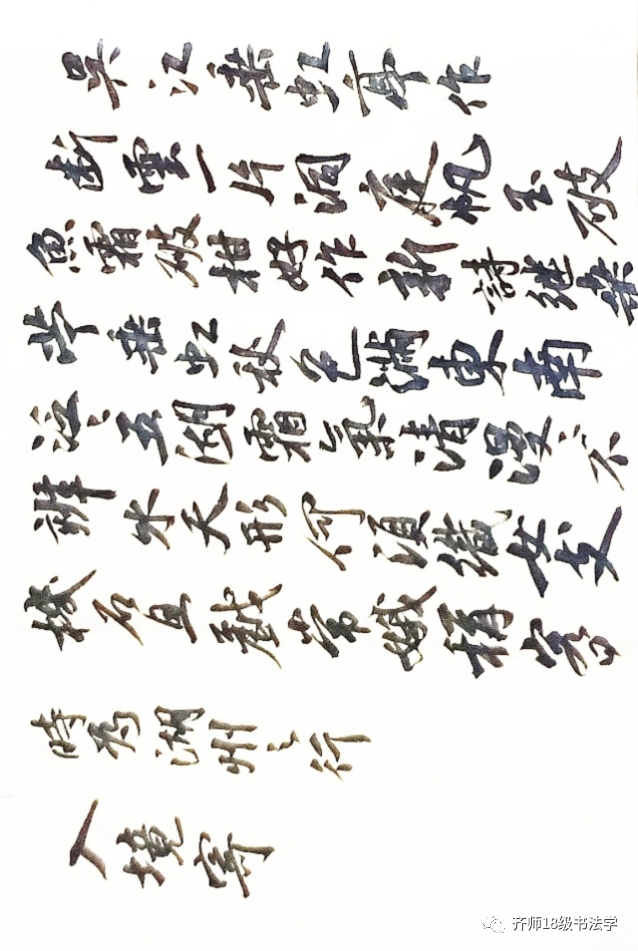 吳江垂虹亭作
斷雲一片洞庭帆玉破
魚霜破柑好作新詩繼桑
苧垂虹秋色滿東南
泛〻五湖霜氣清漫〻不
辨水天形何須織女支
機石且戲常娥稱客
時為湖州之行
入境寄
齐师18级书法学